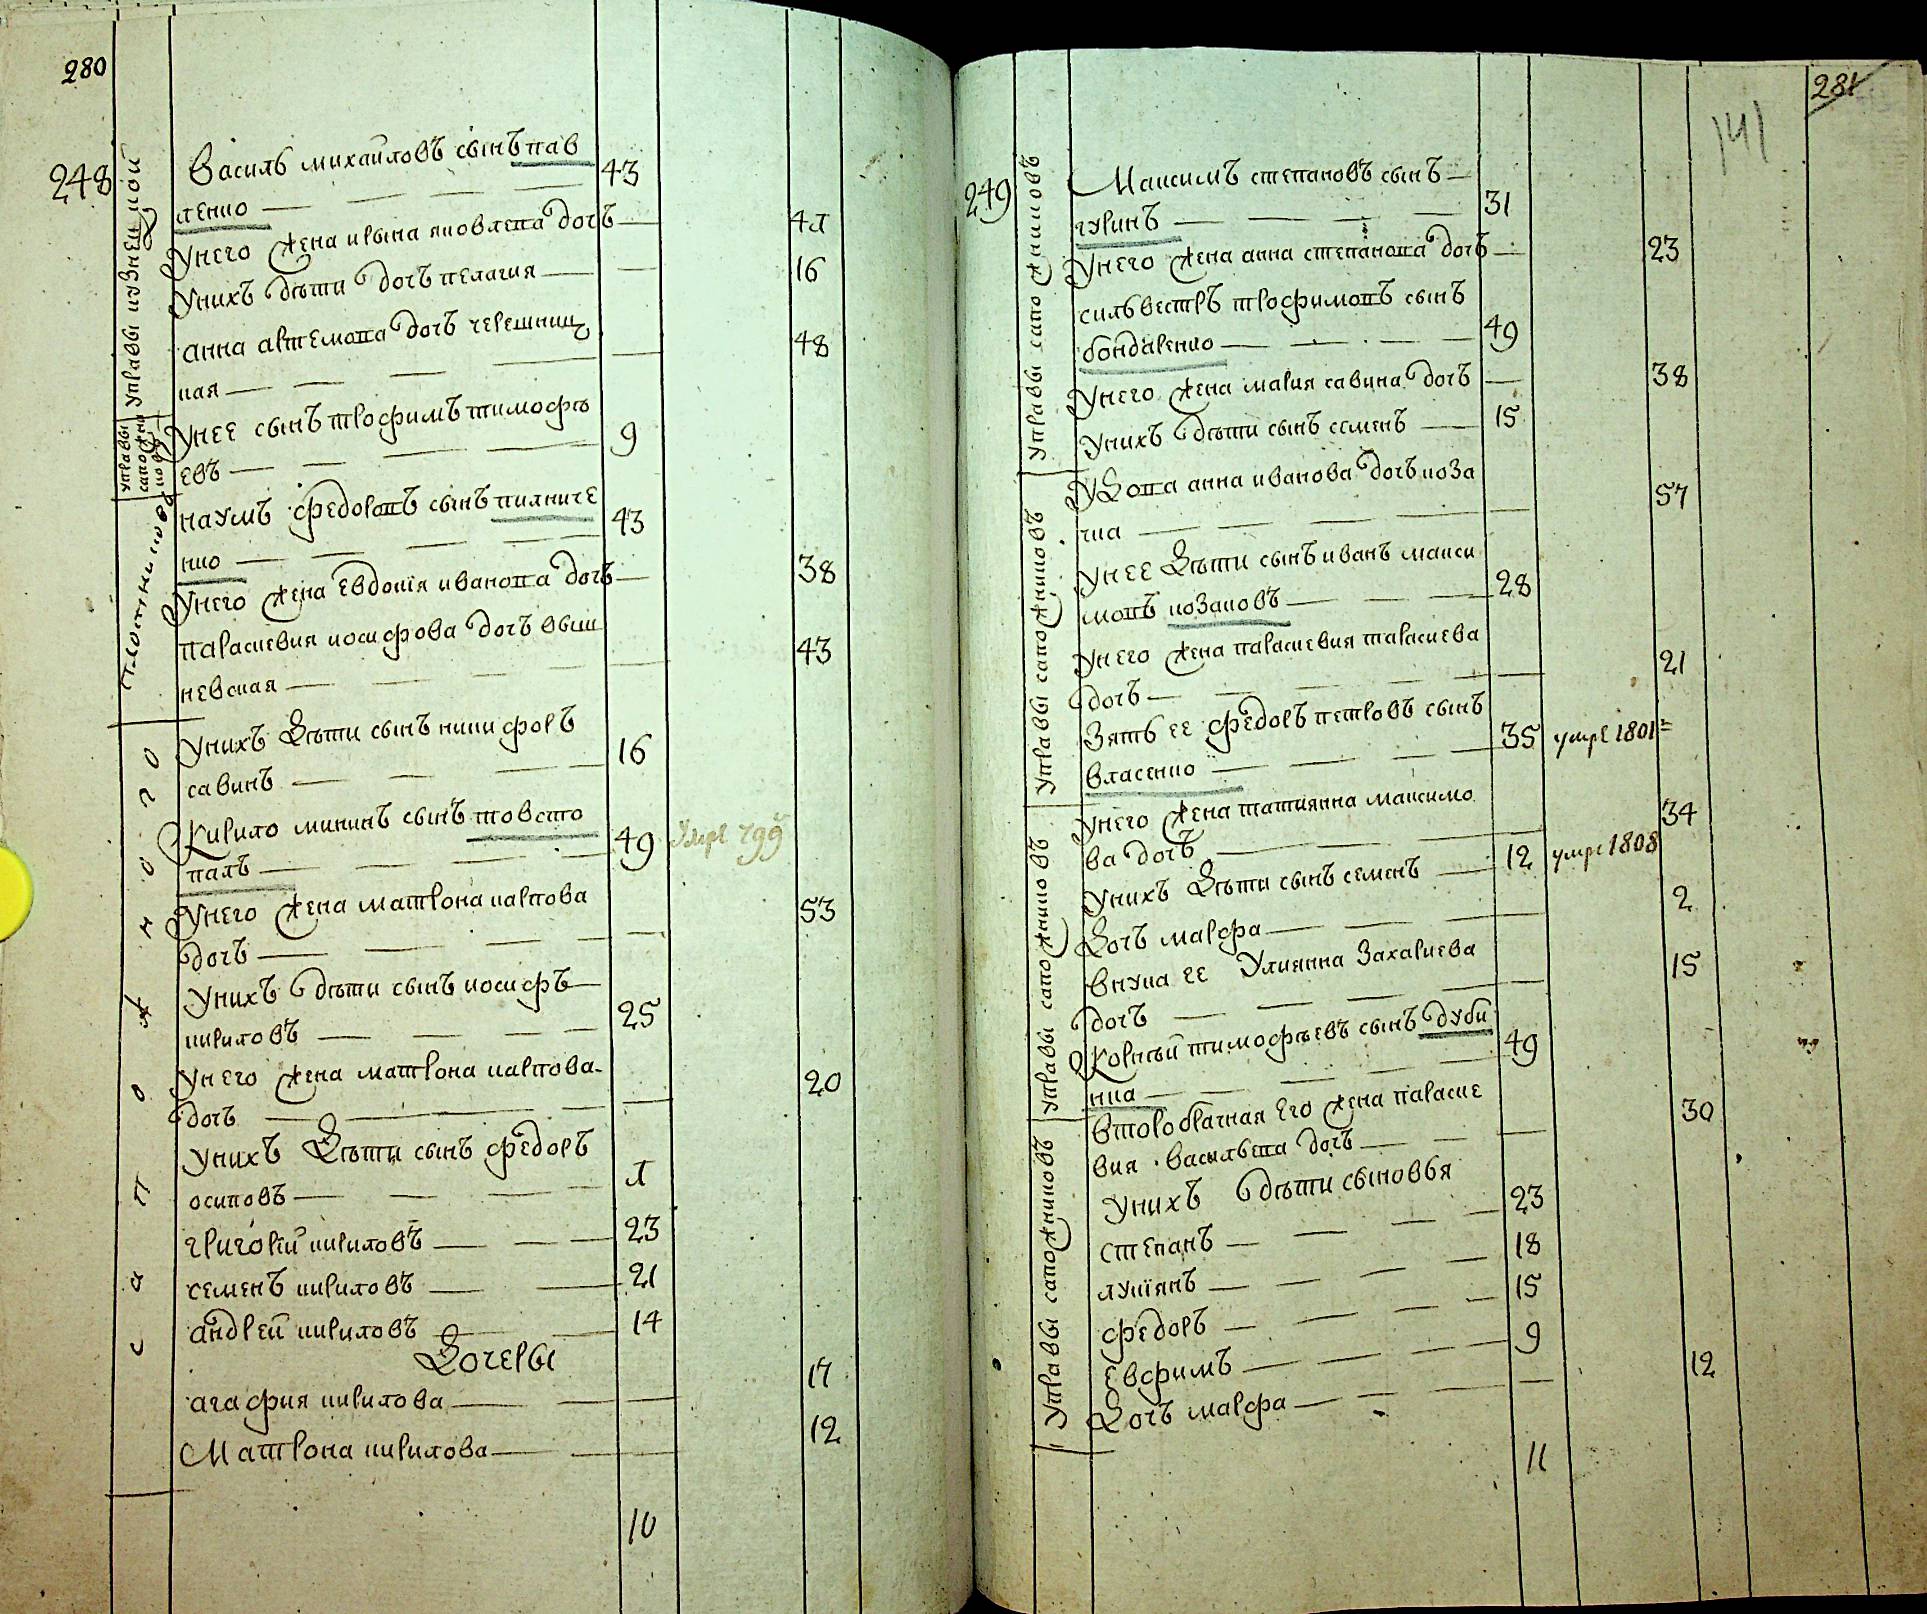 280
248
управы кузнецкой
Василь михайловъ сынъ пав
ленко 43
Унего жена ирына яковлева дочъ 4л
Унихъ дѣти дочъ пелагия 16
анна артемова дочъ черешниц
кая 48
управы сапожниковъ
Унее сынъ трофимъ тимофѣ
евъ 9
плотниковъ
наумъ федоровъ сынъ пилниче
нко 43
Унего жена Евдокія иванова дочъ 38
параскевия иосифова дочъ вѣш
невская 43
сапожного
Унихъ дѣти сынъ никифоръ
савинъ 16
Кирило мининъ сынъ товсто
палъ 49 Умре 799
Унего жена матрона карпова
дочъ 53
Унихъ дѣти сынъ иосифъ
кириловъ 25
Унего жена матрона карпова
дочъ 20
Унихъ дѣти сынъ федоръ
осиповъ л
григорей кириловъ 23
семенъ кириловъ 21
андрей кириловъ 14
дочеры
агафия кирилова 17
Матрона кирилова 12
10
281
141
249
управы сапожниковъ
Максимъ степановъ сынъ
гуринъ 31
Унего жена анна степанова дочъ 23
силвестръ трофимовъ сынъ
бондаренко 49
Унего жена мария савина дочъ 38
Унихъ дѣти сынъ семенъ 15
управы сапожниковъ
Удова анна иванова дочъ коза
чка 57
Унее дѣти сынъ иванъ макси
мовъ козаковъ 28
Унего жена параскевия тарасиева
дочъ 21
Зять ее федоръ петровъ сынъ
власенко 35 умре 1801
управы сапожниковъ
Унего жена татиянна максимо
ва дочъ 34
Унихъ дѣти сынъ семенъ 12 умре 1808
Дочъ марфа 2
внука ее Улиянна Захариева
дочъ 15
Корнѣй тимофѣевъ сынъ дуби
нка 49
управы сапожниковъ
второбрачная Его жена параске
вия васильева дочъ 30
Унихъ дѣти сыновья
степанъ 23
лукіянъ 18
федоръ 15
Евфимъ 9
Дочъ марфа 12
11